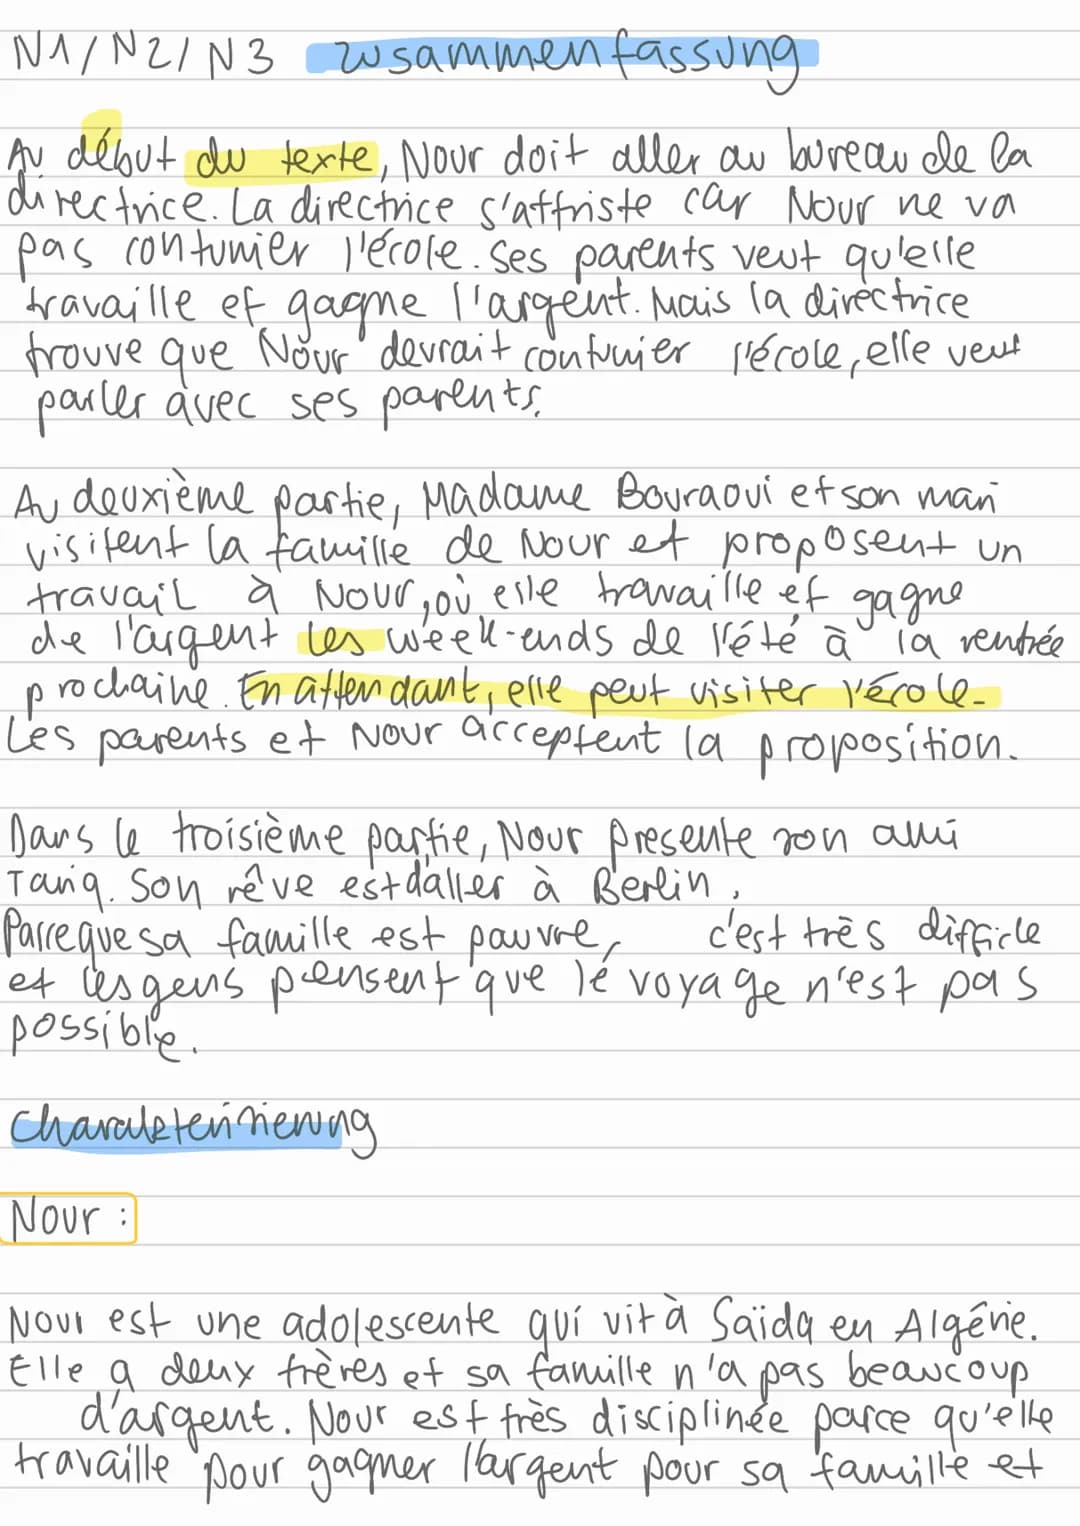 N1/N2/N3 Zusammenfassung
Au début du texte, Nour doit aller au bureau de la
directrice. La directrice s'attriste car Nour ne va
pas contunier l'école. Ses parents veut qu'elle
travaille et gagne l'argent. Mais la directrice
trouve que Nour devrait contunier l'école, elle veut
parler avec ses parents.
Au deuxième partie, Madame Bouraoui et son mari
visitent la famille de Nour et proposent un
travail à Nour, où elle travaille et gagne
de l'argent les week-ends de l'été à la rentrée
prochaine. En attendant, elle peut visiter l'école.
Les parents et Nour acceptent la proposition.
Dans le troisième partie, Nour presente son ami
Tariq. Son rêve est d'aller à Berlin.
Parce que sa famille est pauvre, c'est très difficle
et les gens pensent que le voyage n'est pas
possible.
Charakterisierung
Nour :
Nour est une adolescente qui vit à Saïda en Algérie.
Elle a deux frères et sa famille n'a pas beaucoup
d'argent. Nour est très disciplinée parce qu'elle
travaille pour gagner l'argent pour sa famille et